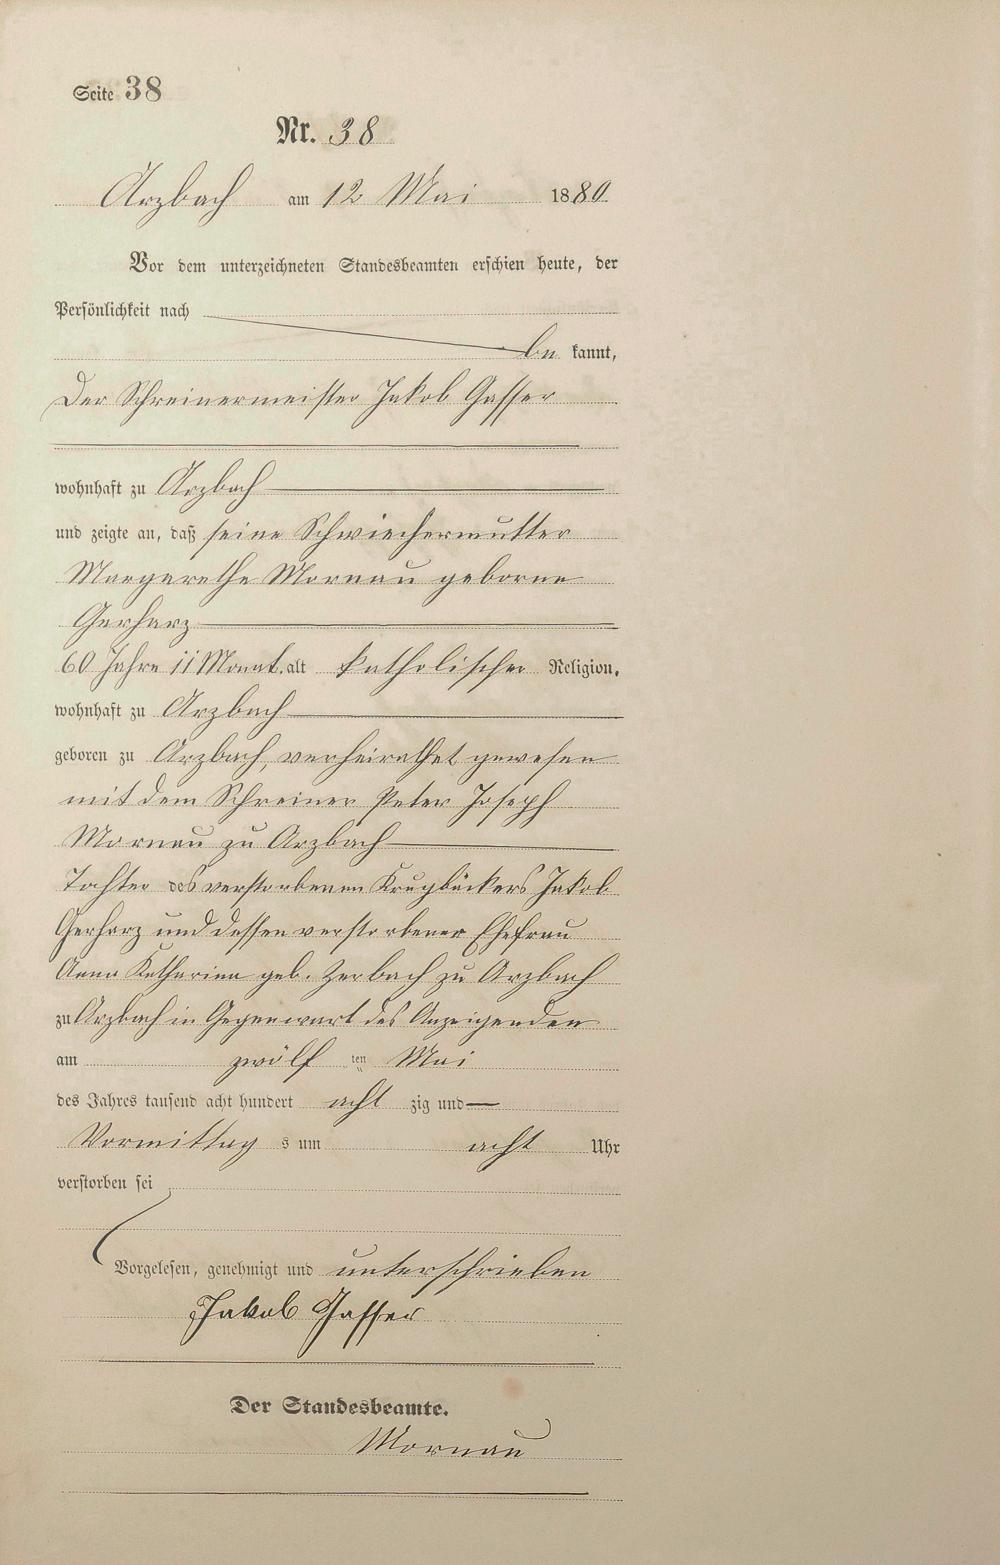 Seite 38
Nr. 38
Arzbach am 12 Mai 1880.
Vor dem unterzeichneten Standesbeamten erschien heute, der
Persönlichkeit nach
be kannt,
Der Schreinermeister Jakob Gasser
wohnhaft zu Arzbach
und zeigte an, daß seine Schwiechermutter
Margarethe Mornau geborne
Gerharz
60 Jahre 11 Monat. alt katholischer Religion,
wohnhaft zu Arzbach
geboren zu Arzbach, verheirathet gewesen
mit dem Schreiner Peter Joseph
Mornau zu Arzbach
Tochter des verstorbenen Krugbäckers Jakob
Gerharz und dessen verstorbener Ehefrau
Anna Katharina geb. Zerbach zu Arzbach
zu Arzbach in Gegenwart des Anzeigenden
am zwölf ten Mai
des Jahres tausend acht hundert acht zig und
Vormittag s um acht Uhr
verstorben sei
Vorgelesen, genehmigt und unterschrieben
Jakob Gasser
Der Standesbeamte.
Mornau